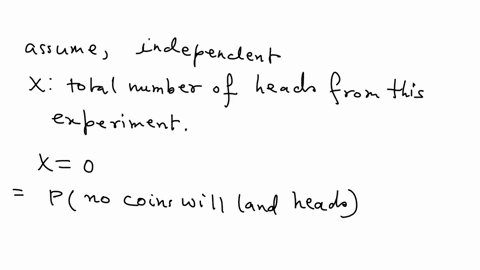 assume, independent
X: total number of heads from this
experiment.
X = 0
= P( no coins will land heads)